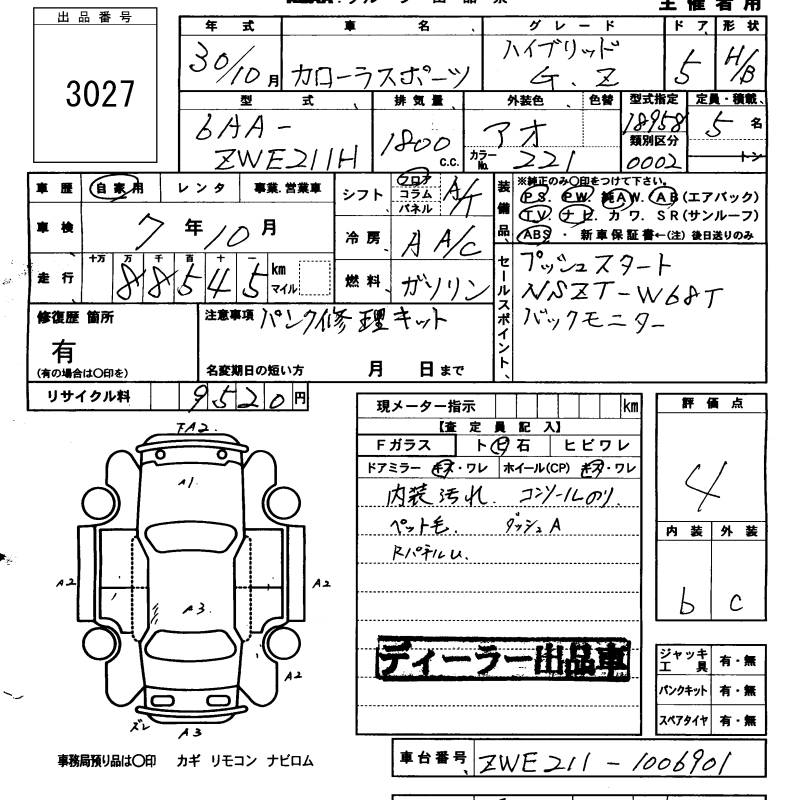 主催者用
出品番号
3027
年式 車名 グレード ドア 形状
30/10月 カローラスポーツ ハイブリッド G.Z 5 H/B
型式 排気量 外装色 色替 型式指定 定員・積載
6AA-ZWE211H 1800 c.c. アオ 18958 5名
カラーNo. 221 類別区分 0002 トン
車歴 自家用 レンタ 事業.営業車
シフト フロア コラム パネル A/T
車検 7年10月
冷房 A A/C
走行 十万 万 千 百 十 一
88545 km マイル
燃料 ガソリン
装備品 ※純正のみ〇印をつけて下さい。
PS. PW. 純AW. AB(エアバック)
TV. ナビ. カワ. SR(サンルーフ)
ABS ・ 新車保証書←(注) 後日送りのみ
セールスポイント
プッシュスタート
NSZT-W68T
バックモニター
修復歴 箇所
有
(有の場合は〇印を)
注意事項 パンク修理キット
名変期日の短い方 月 日まで
リサイクル料 9520円
現メーター指示 km
【査定員記入】
Fガラス トビ石 ヒビワレ
ドアミラー キズ・ワレ ホイール(CP) キズ・ワレ
内装汚れ. コンソールのり.
ペット毛. ダッシュA
RパネルU.
ディーラー出品車
評価点
4
内装 外装
b c
ジャッキ工具 有・無
パンクキット 有・無
スペアタイヤ 有・無
FA2.
A1.
A2
A2
A3.
A2
ズレ
A3
事務局預り品は〇印 カギ リモコン ナビロム
車台番号 ZWE211-1006901